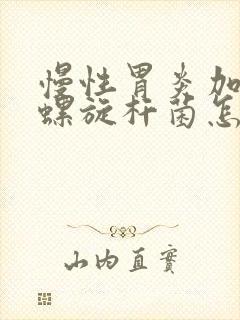 慢性胃炎加
螺旋杆菌怎
山内直實